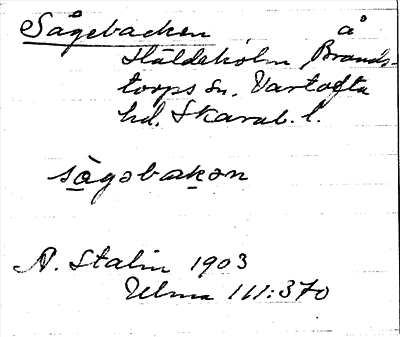 Sågebacken å
Håldeholm Brands-
torps sn. Vartofta
hd. Skarab. l.
sågəbakən
A. Stalin 1903
Ulma 111:370